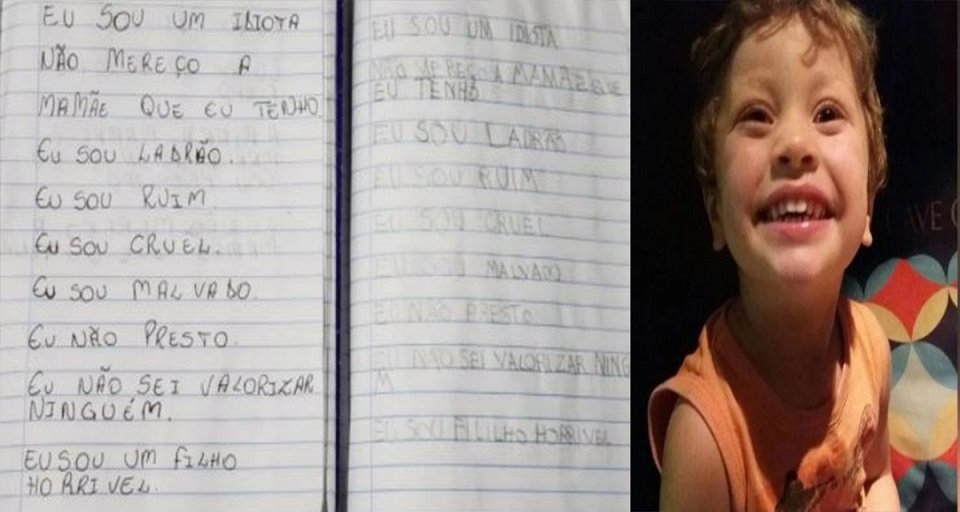 EU SOU UM IDIOTA
NÃO MEREÇO A
MAMÃE QUE EU TENHO
EU SOU LADRÃO.
EU SOU RUIM
EU SOU CRUEL.
EU SOU MALVADO.
EU NÃO PRESTO.
EU NÃO SEI VALORIZAR
NINGUÉM.
EU SOU UM FILHO
HORRIVEL.
EU SOU UM IDIOTA
NÃO MEREÇO A MAMÃE QUE
EU TENHO
EU SOU LADRÃO
EU SOU RUIM
EU SOU CRUEL
EU SOU MALVADO
EU NÃO PRESTO
EU NÃO SEI VALORIZAR NING
M
EU SOU FILILHO HORRIVEL
AVE